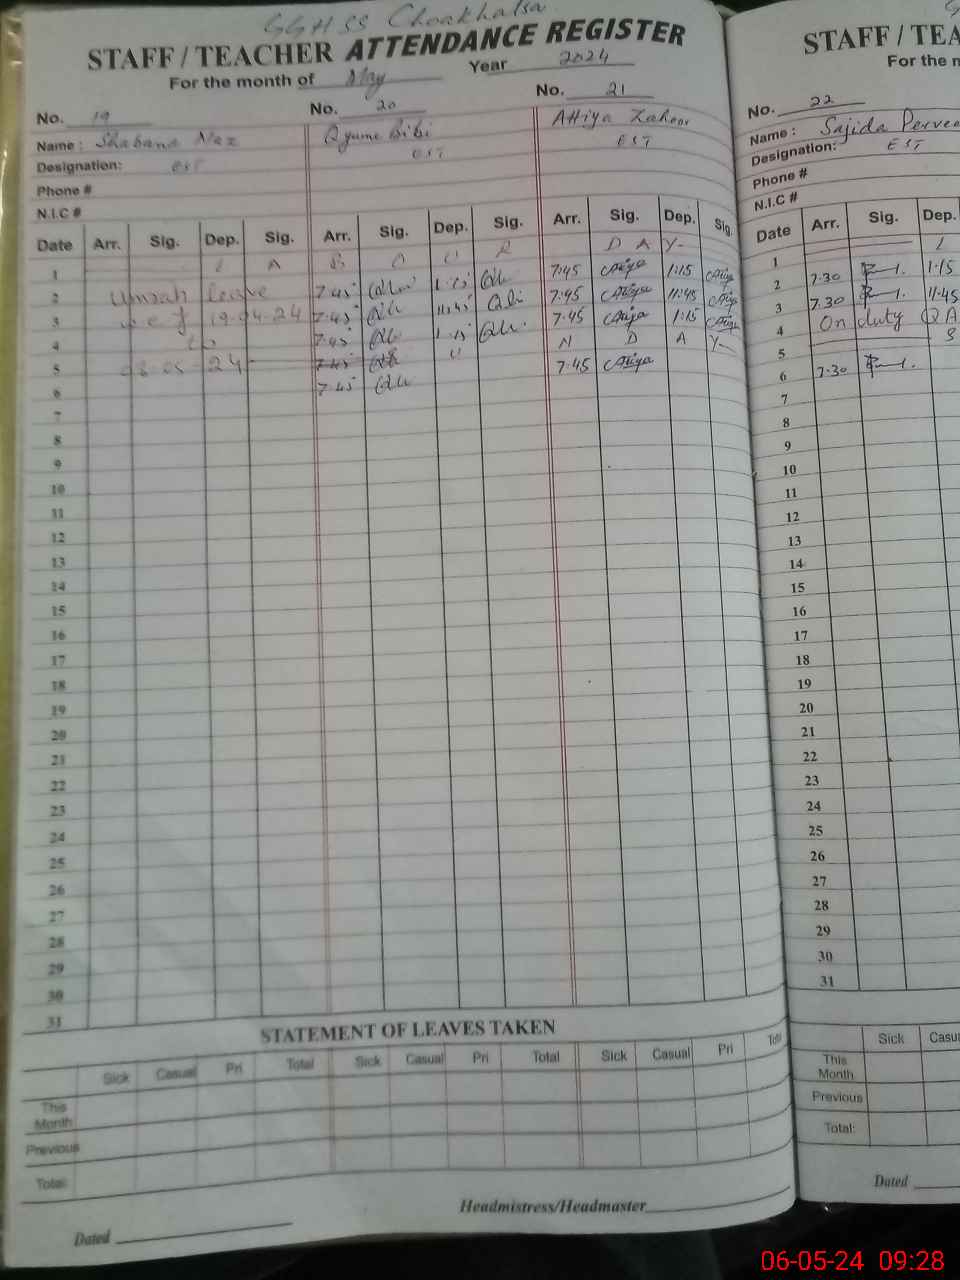 GGHSS Choakhalsa
STAFF / TEACHER ATTENDANCE REGISTER
For the month of May Year 2024
No. 19 No. 20 No. 21
Name : Shabana Naz Qyume Bibi Attiya Zahoor
Designation: EST EST EST
Phone #
N.I.C #
Date Arr. Sig. Dep. Sig. Arr. Sig. Dep. Sig. Arr. Sig. Dep. Sig.
1 L A B O U R D A Y
2 Umrah leave 7:45 1:15 7:45 Attiya 1:15 Attiya
3 w.e.f 19-04-24 7:45 11:45 7:45 Attiya 11:45 Attiya
4 to 7:45 1:15 7:45 Attiya 1:15 Attiya
5 03-05-24 7:45 U N D A Y
6 7:45 7:45 Attiya
7
8
9
10
11
12
13
14
15
16
17
18
19
20
21
22
23
24
25
26
27
28
29
30
31
STATEMENT OF LEAVES TAKEN
Sick Casual Pri Total Sick Casual Pri Total Sick Casual Pri Total
This Month
Previous
Total:
Headmistress/Headmaster
Dated
STAFF / TEA
For the m
No. 22
Name : Sajida Pervee
Designation: EST
Phone #
N.I.C #
Date Arr. Sig. Dep.
1 L
2 7:30 1:15
3 7:30 11:45
4 On duty QA
5 S
6 7:30
7
8
9
10
11
12
13
14
15
16
17
18
19
20
21
22
23
24
25
26
27
28
29
30
31
Sick Casu
This Month
Previous
Total:
Dated
06-05-24 09:28